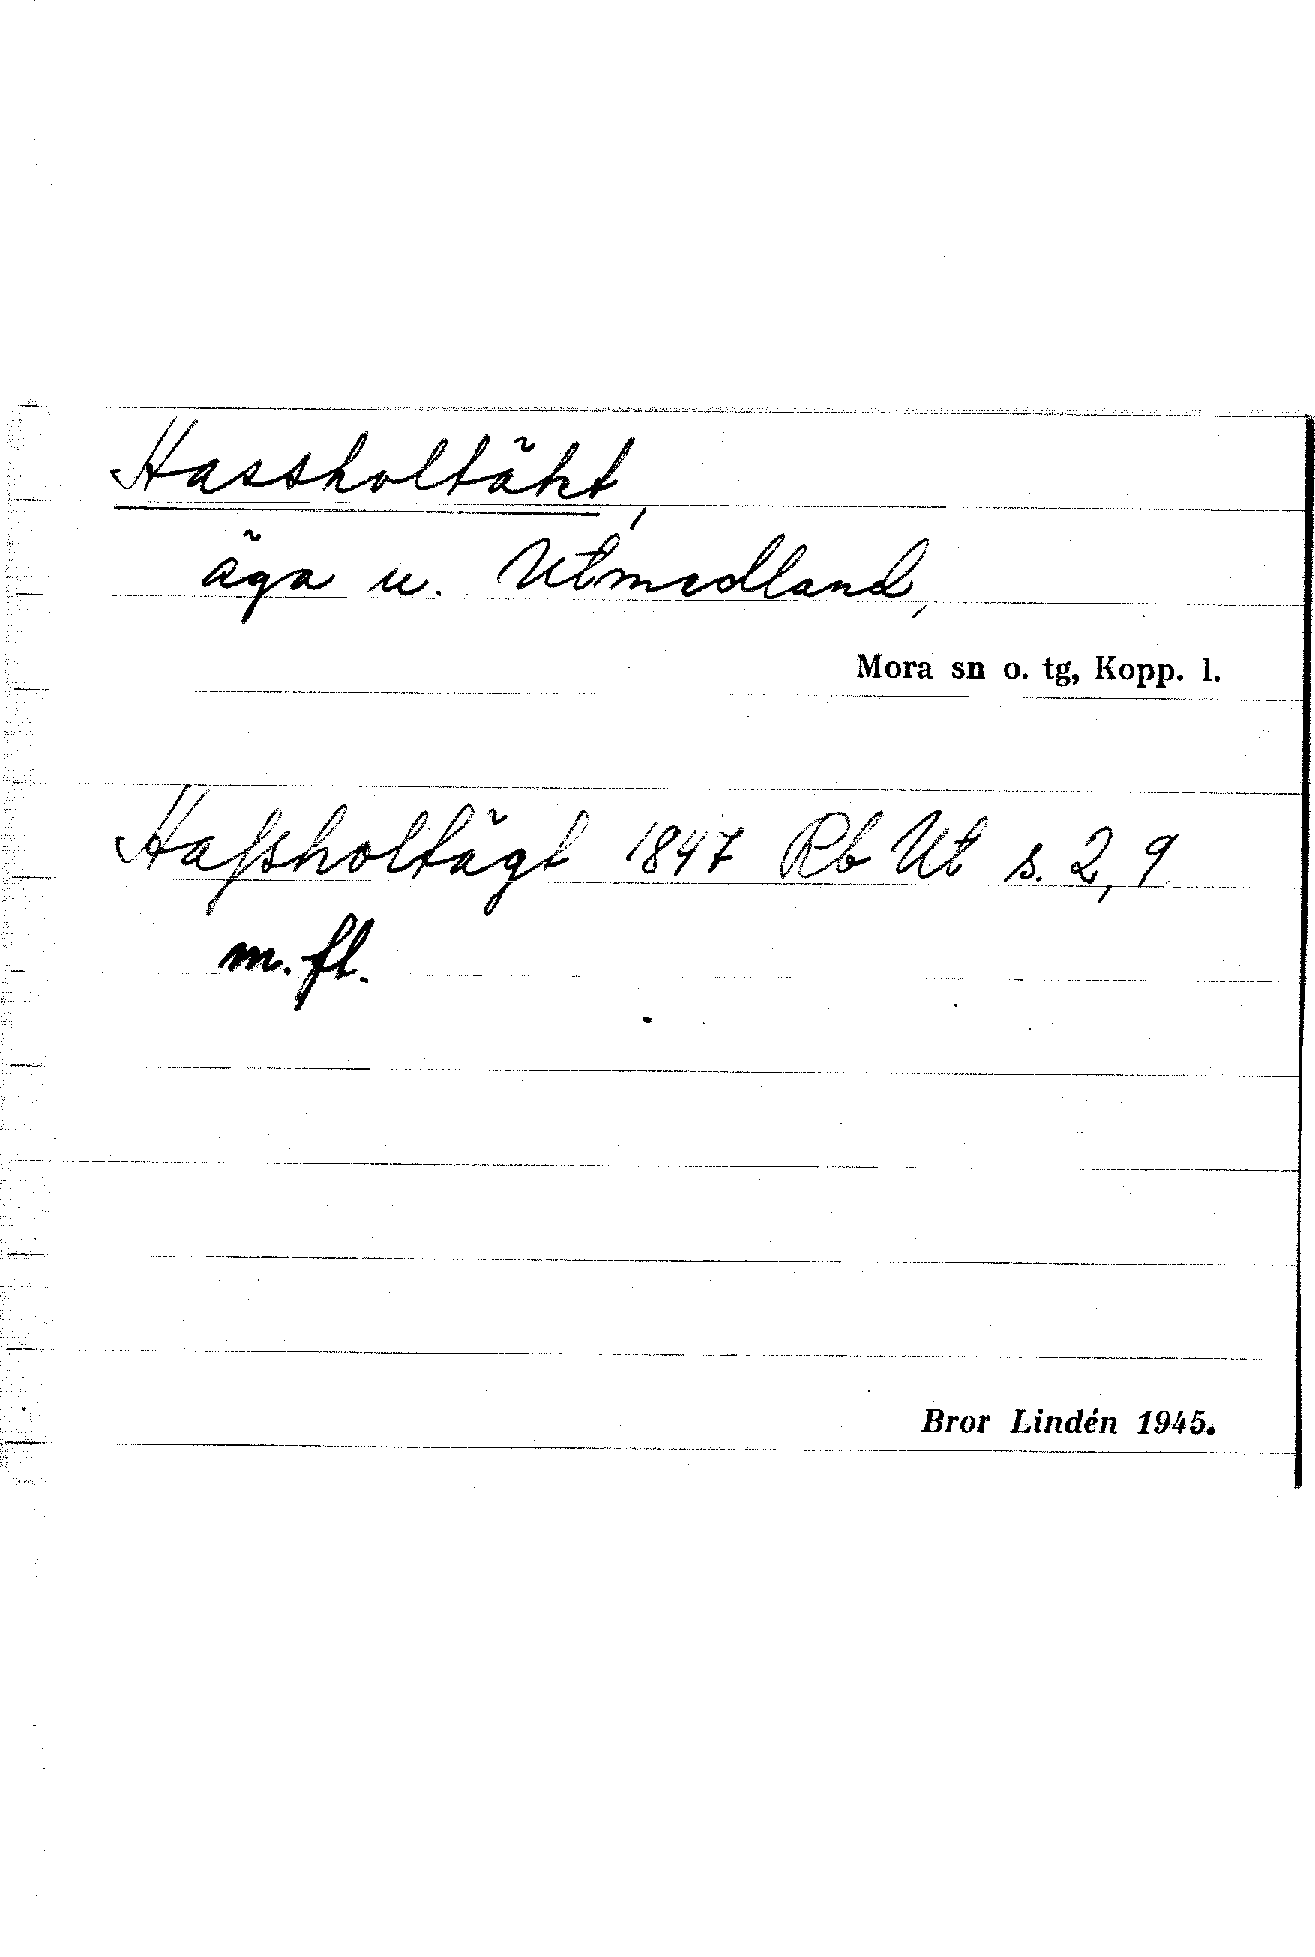 Hassholtäkt,
äga u. Utmedland,
Mora sn o. tg, Kopp. l.
Hassholtägt 1847 Rb Ut s. 2, 9
m. fl.
Bror Lindén 1945.